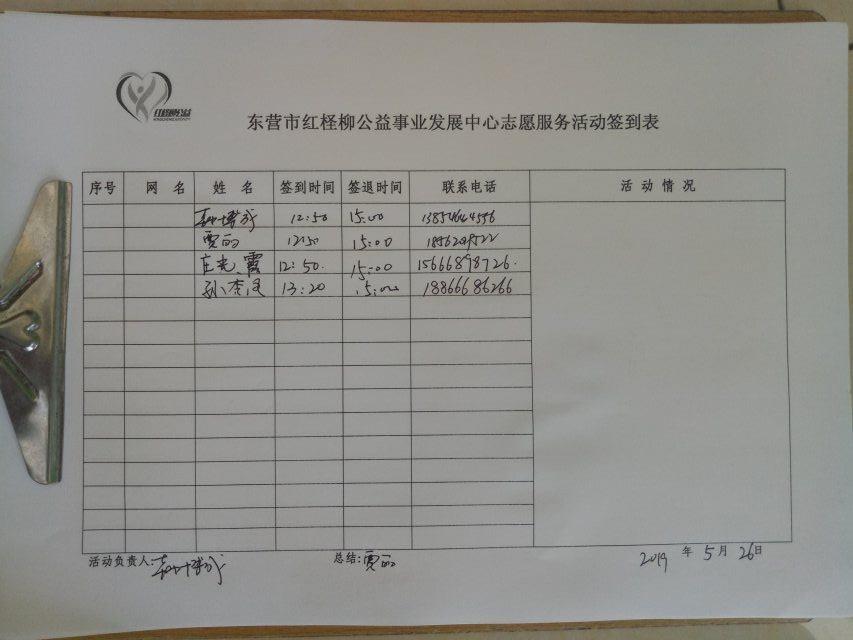 红柽柳公益
东营市红柽柳公益事业发展中心志愿服务活动签到表
序号 网 名 姓 名 签到时间 签退时间 联系电话 活 动 情 况
12:50 15:00
贾丽 12:50 15:00
霞 12:50. 15:00 15666898726.
孙 13:20 15:00 18866686266
活动负责人: 总结: 贾丽 2019 年 5 月 26 日